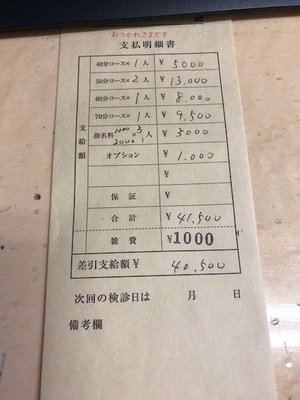 おつかれさまです
支払明細書
支給額
40分コース×1人 ¥ 5000
50分コース×2人 ¥ 13.000
60分コース×1人 ¥ 8.000
70分コース×1人 ¥ 9,500
指名料 1000 × 3 人 ¥ 5000
2000 1
オプション ¥ 1.000
¥
保証 ¥
合計 ¥ 41,500
雑費 ¥1000
差引支給額 ¥ 40,500
次回の検診日は 月 日
備考欄